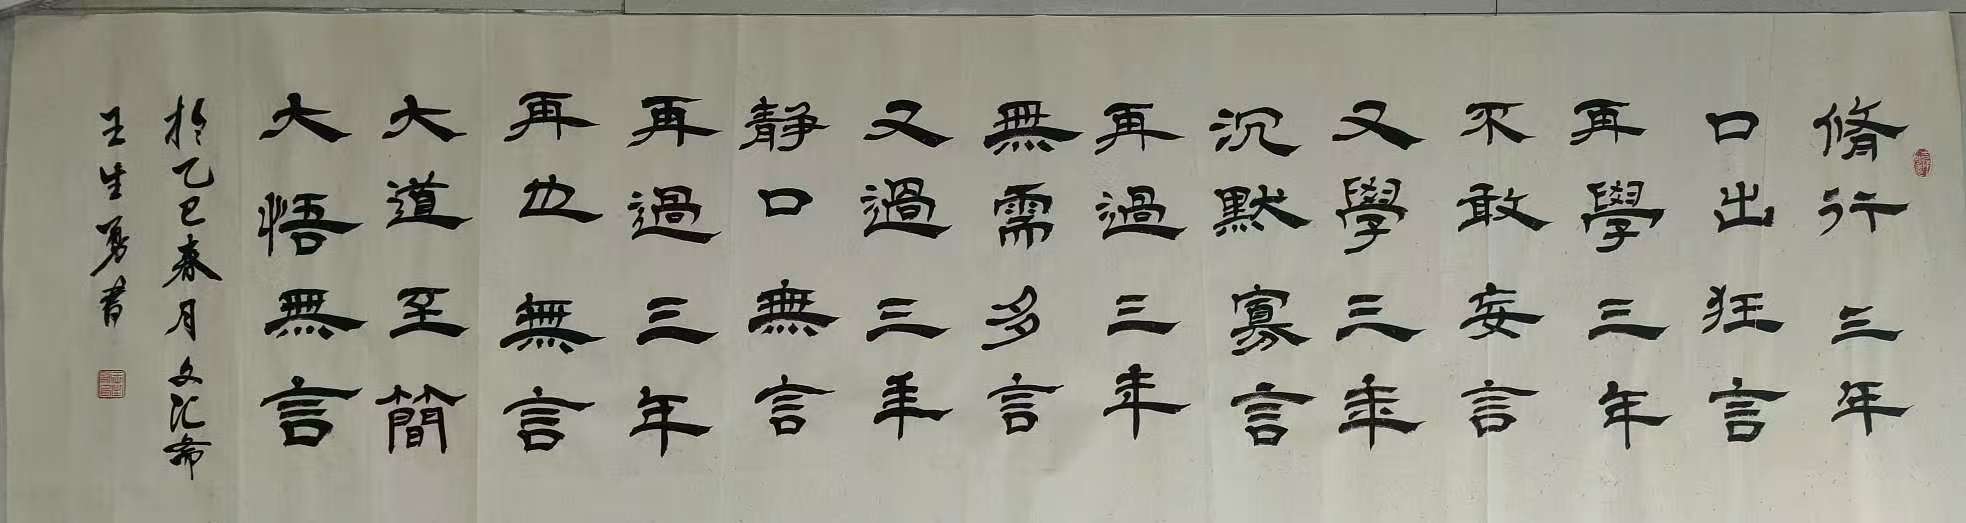 脩行三年
口出狂言
再學三年
不敢妄言
又學三年
沉默寡言
再過三年
無需多言
又過三年
静口無言
再過三年
再也無言
大道至簡
大悟無言
於乙巳春月文汇斋
王生勇书